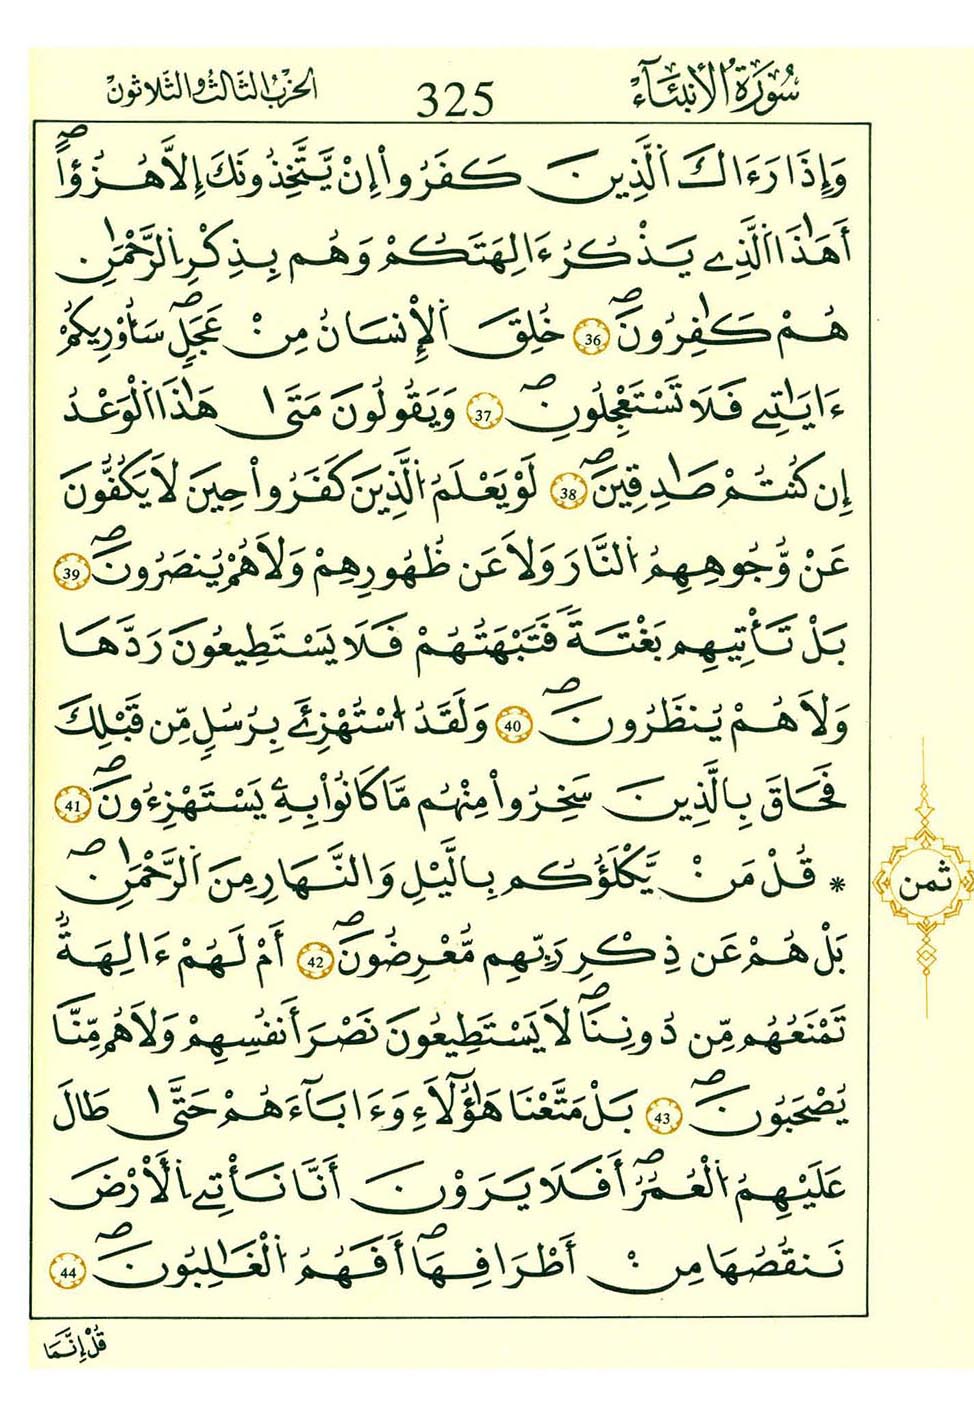 سُورَةُ الْأَنبِيَاءِ 325 الحِزْبُ الثَّالِثُ وَالثَّلَاثُونَ
وَإِذَا رَءَاكَ اَلَّذِينَ كَفَرُواْ إِنْ يَّتَّخِذُونَكَ إِلاَّ هُزُؤاًۖ
أَهَٰذَا اَلَّذِے يَذْكُرُ ءَالِهَتَكُمْ وَهُم بِذِكْرِ اِلرَّحْمَٰنِ
هُمْ كَٰفِرُونَۖ 36 خُلِقَ اَلْإِنسَانُ مِنْ عَجَلٍۖ سَأُوْرِيكُمُ
ءَايَٰتِے فَلَا تَسْتَعْجِلُونِۖ 37 وَيَقُولُونَ مَتَىٰ هَٰذَا اَلْوَعْدُ
إِن كُنتُمْ صَٰدِقِينَۖ 38 لَوْ يَعْلَمُ اُلَّذِينَ كَفَرُواْ حِينَ لَا يَكُفُّونَ
عَنْ وُّجُوهِهِمُ اُلنَّارَ وَلَا عَن ظُهُورِهِمْ وَلَا هُمْ يُنصَرُونَۖ 39
بَلْ تَأْتِيهِم بَغْتَةً فَتَبْهَتُهُمْ فَلَا يَسْتَطِيعُونَ رَدَّهَا
وَلَا هُمْ يُنظَرُونَۖ 40 وَلَقَدُ اُسْتُهْزِئَ بِرُسُلٍ مِّن قَبْلِكَ
فَحَاقَ بِالَّذِينَ سَخِرُواْ مِنْهُم مَّا كَانُواْ بِهِۦ يَسْتَهْزِءُونَۖ 41
* قُلْ مَنْ يَّكْلَؤُكُم بِالَّيْلِ وَالنَّهَارِ مِنَ اَلرَّحْمَٰنِۖ
بَلْ هُمْ عَن ذِكْرِ رَبِّهِم مُّعْرِضُونَۖ 42 أَمْ لَهُمْ ءَالِهَةٌ
تَمْنَعُهُم مِّن دُونِنَاۖ لَا يَسْتَطِيعُونَ نَصْرَ أَنفُسِهِمْ وَلَا هُم مِّنَّا
يُصْحَبُونَۖ 43 بَلْ مَتَّعْنَا هَٰؤُلَآءِ وَءَابَآءَهُمْ حَتَّىٰ طَالَ
عَلَيْهِمُ اُلْعُمُرُۖ أَفَلَا يَرَوْنَ أَنَّا نَأْتِے اِلْأَرْضَ
نَنقُصُهَا مِنْ أَطْرَافِهَاۖ أَفَهُمُ اُلْغَٰلِبُونَۖ 44
ثمن
قُلْ إِنَّمَا